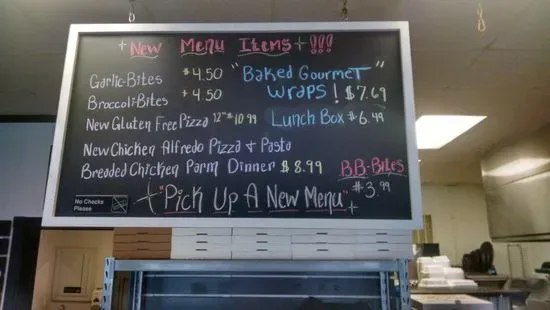 New Menu Items !!!
Garlic-Bites $4.50
Broccoli-Bites $4.50
New Gluten Free Pizza 12" $10.99
New Chicken Alfredo Pizza & Pasta
Breaded Chicken Parm Dinner $8.99
"Baked Gourmet"
Wraps! $7.69
Lunch Box $6.49
BB-Bites
$3.99
"Pick Up A New Menu"
No Checks
Please